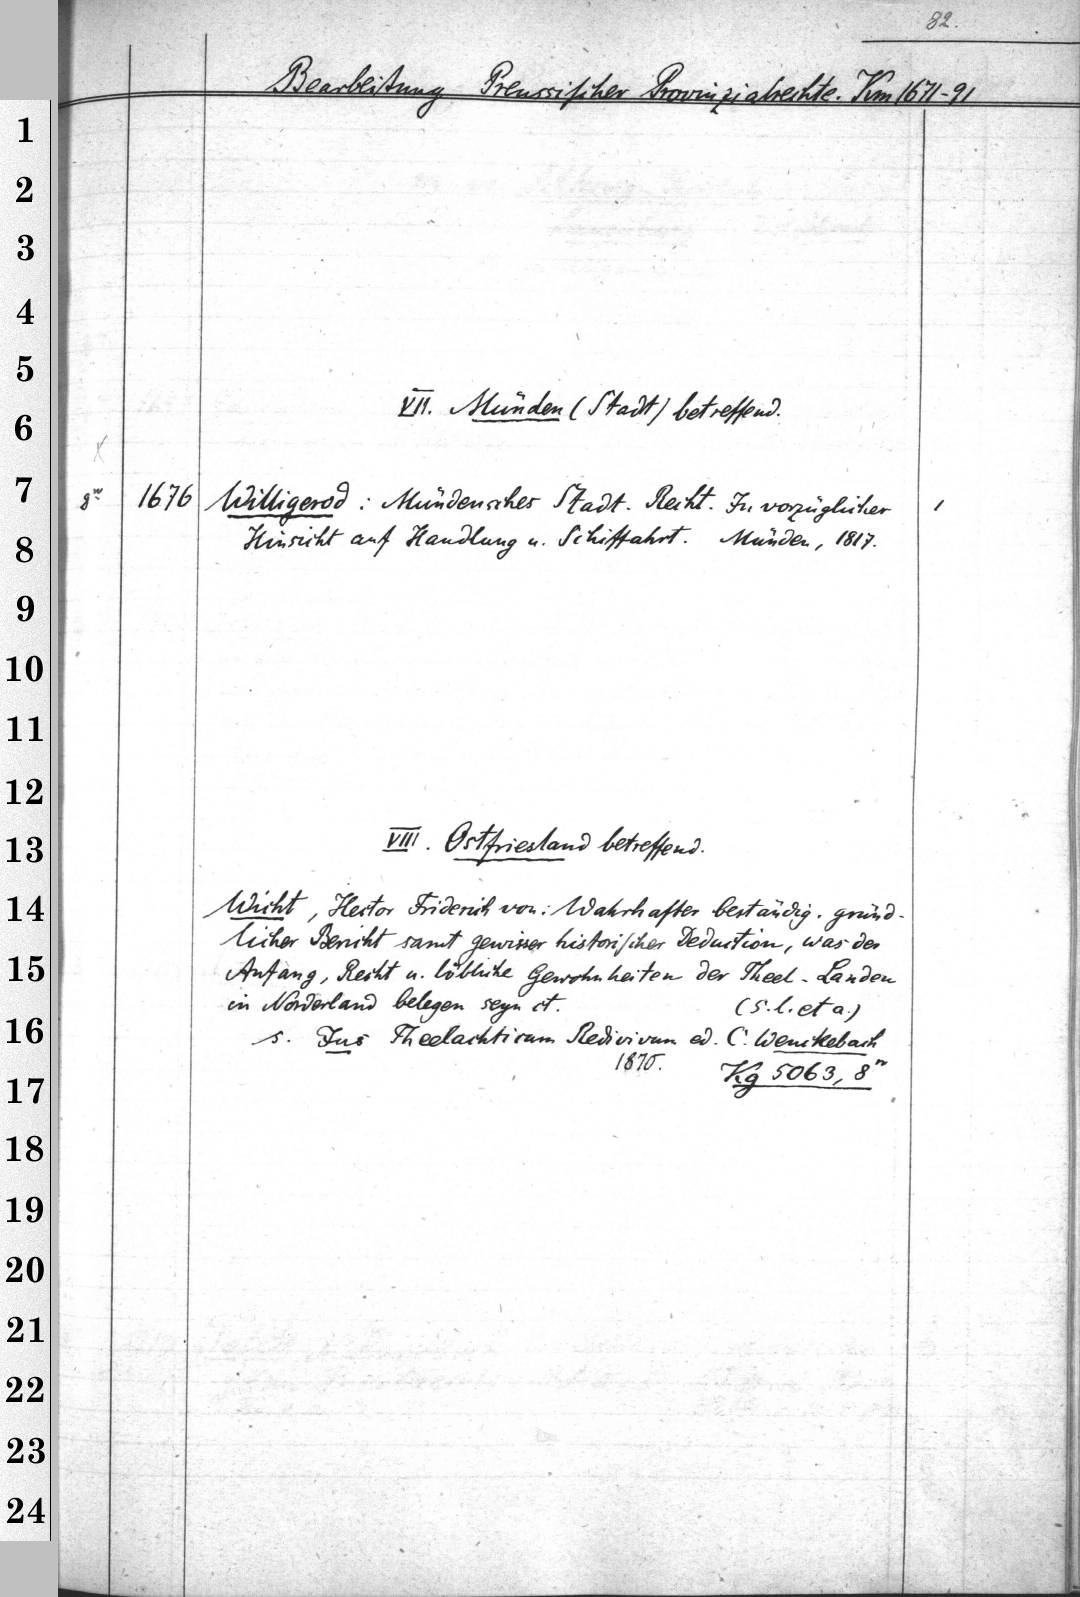 82.
Bearbeitung Preussischer Provinzialrechte. Km 1671-91
1
2
3
4
5
VII. Münden (Stadt) betreffend.
6
7
8° 1676 Willigerod: Mündensches Stadt-Recht. In vorzüglicher 1
8
Hinsicht auf Handlung u. Schiffahrt. Münden, 1817.
9
10
11
12
13
VIII. Ostfriesland betreffend.
14
Wicht, Hector Friderich von: Wahrhafter beständig. gründ-
licher Bericht samt gewisser historischer Deduction, was der
15
Anfang, Recht u. löbliche Gewohnheiten der Theel-Landen
in Norderland belegen seyn ct. (s. l. et a.)
16
s. Jus Theelachticum Redivivum ed. C. Wenckebach
1870.
17
Kg 5063, 8°
18
19
20
21
22
23
24